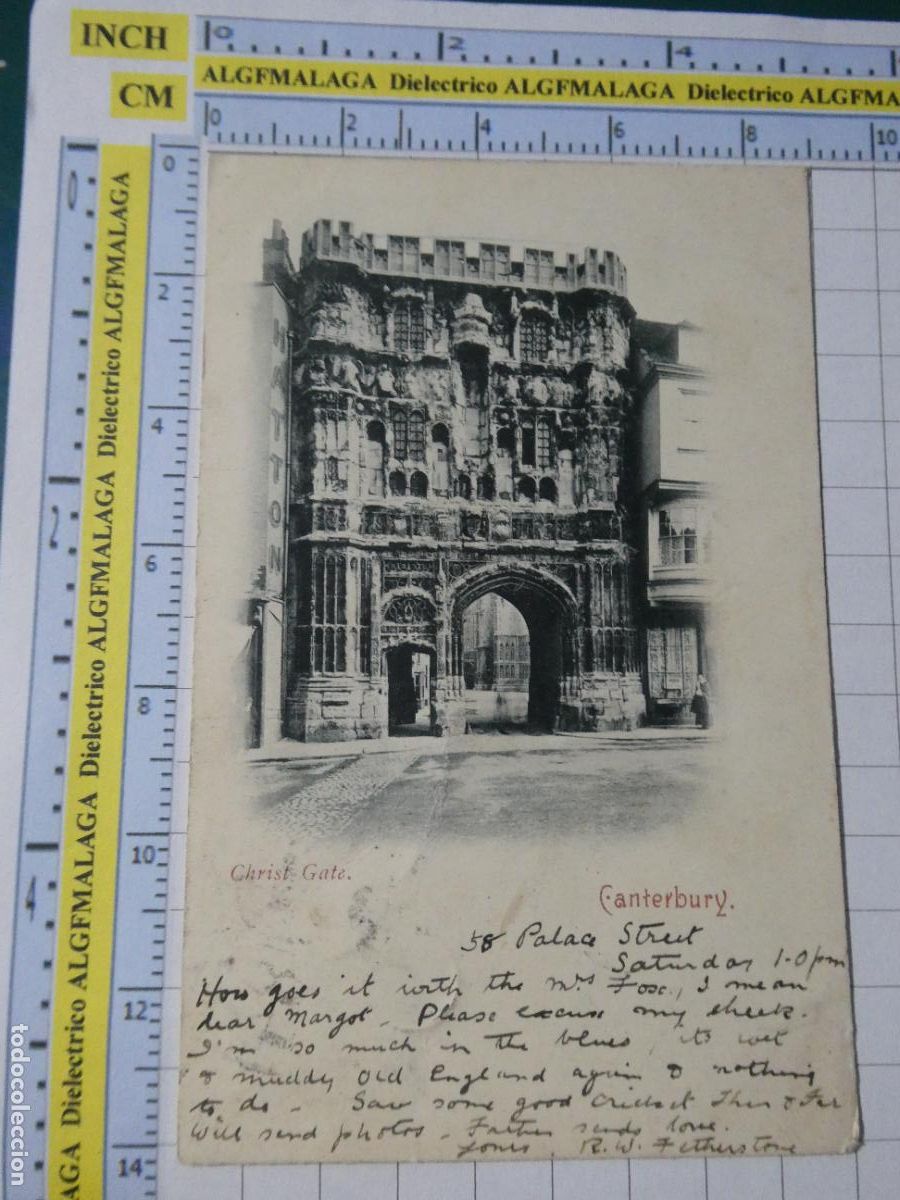 INCH
0 2 4
ALGFMALAGA Dielectrico ALGFMALAGA Dielectrico ALGFMA
CM
0 2 4 6 8 10
0 2 4
AGA Dielectrico ALGFMALAGA Dielectrico ALGFMALAGA Dielectrico ALGFMALAGA
0 2 4 6 8 10 12 14
HATTON
Christ Gate.
Canterbury.
58 Palace Street
Saturday 1-0 pm
How goes it with the Mrs Fox, I mean
dear Margot. Please excuse my cheek.
I'm so much in the blues, its wet
& muddy Old England again & nothing
to do - Saw some good Cricket Thurs & Fri
Will send photos. Father sends love.
Yours R.W. Fetherstone
todocoleccion